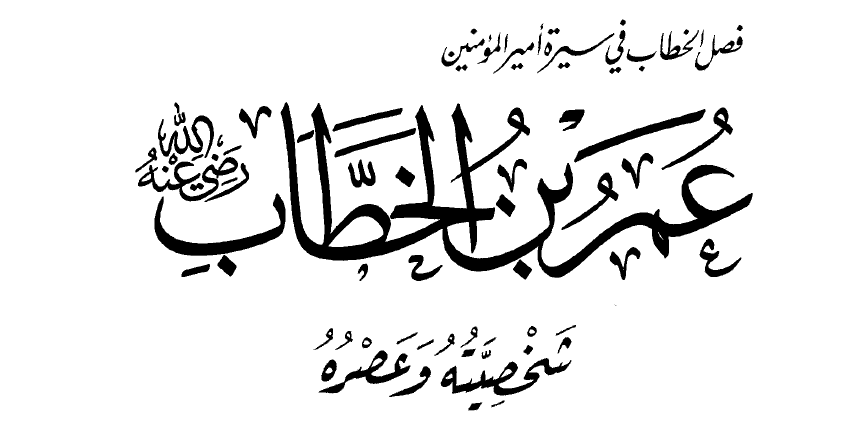 فصل الخطاب في سيرة أمير المؤمنين
عُمَرُ بْنُ الخَطَّابِ رَضِيَ اللهُ عَنْهُ
شَخْصِيَّتُهُ وَعَصْرُهُ